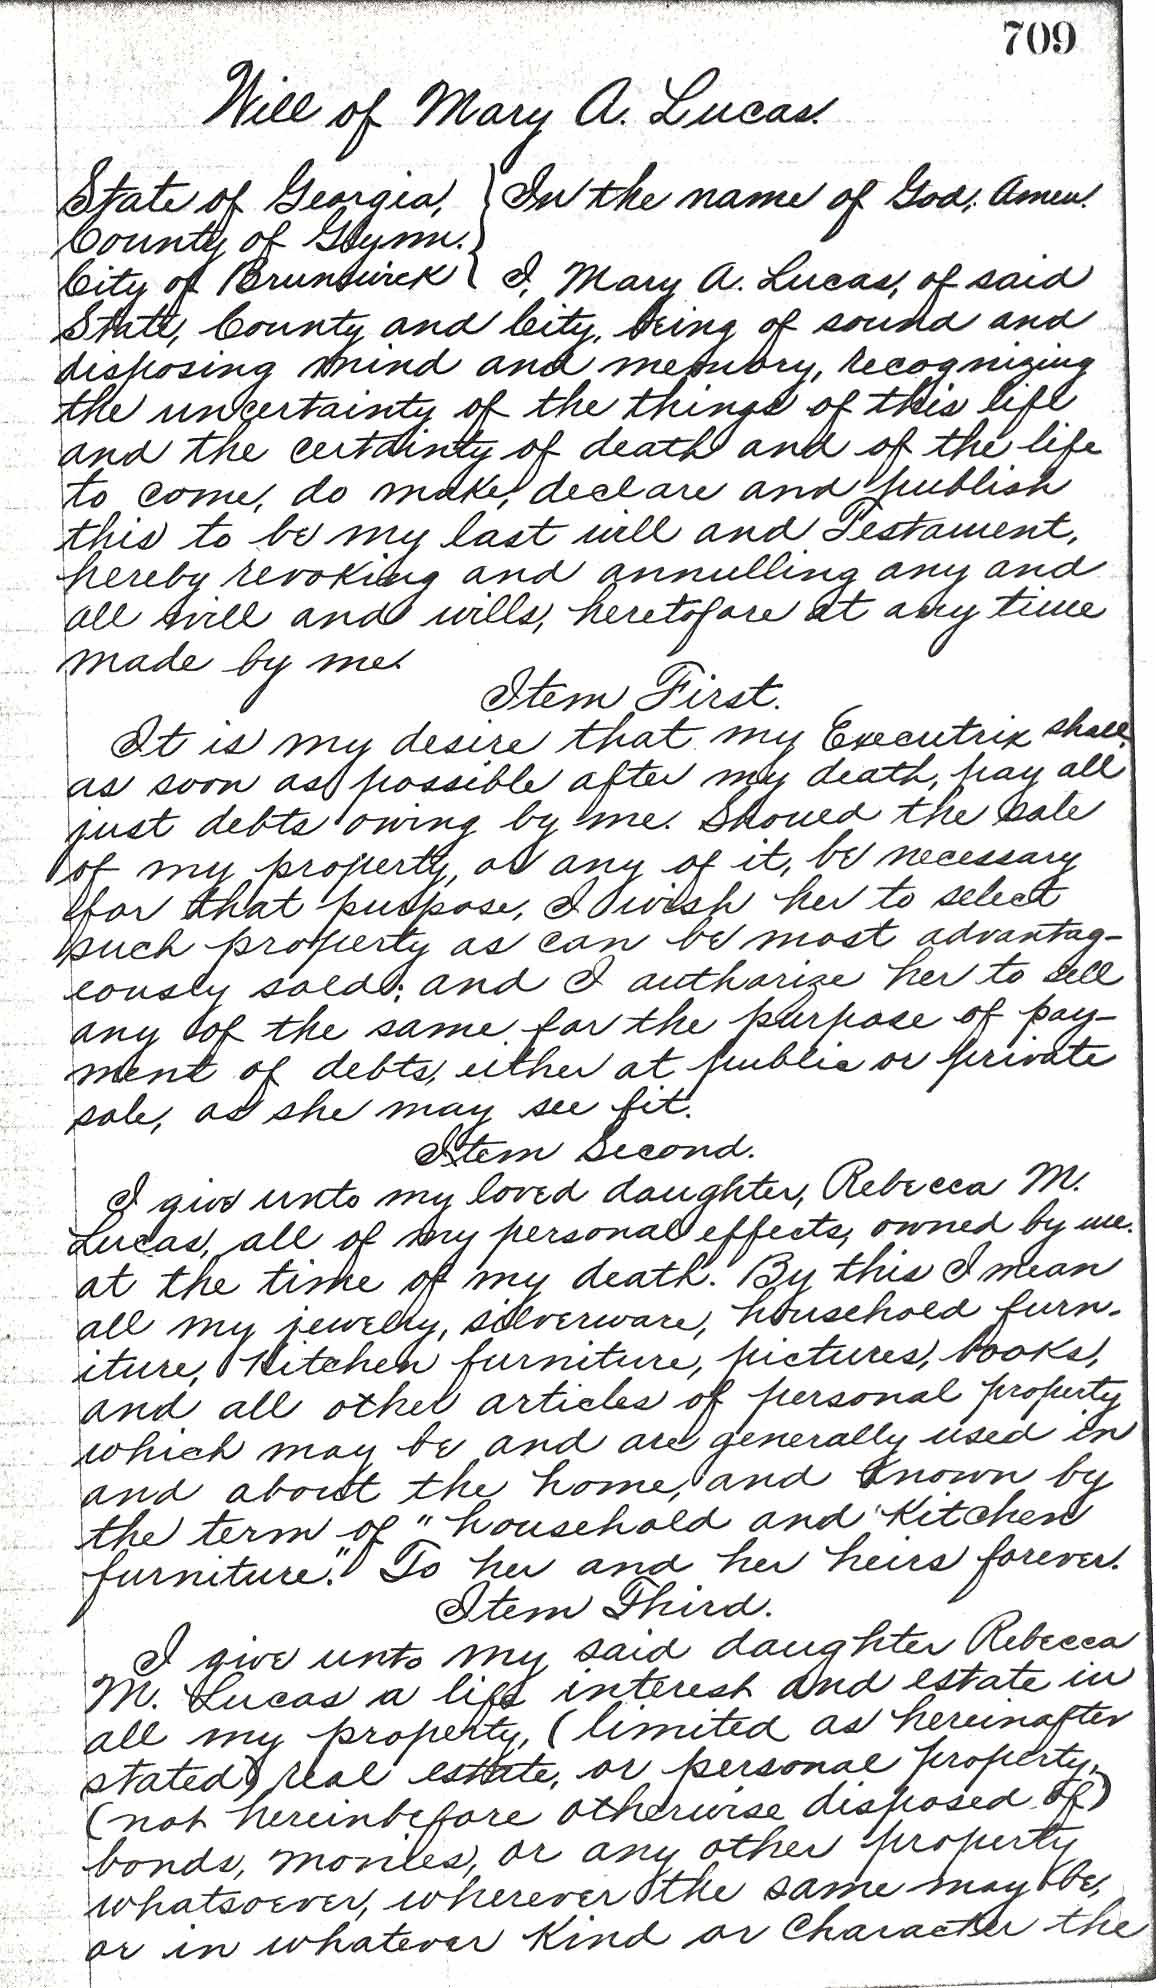 709
Will of Mary A. Lucas.
State of Georgia, } In the name of God, Amen.
County of Glynn. }
City of Brunswick } I, Mary A. Lucas, of said
State, County and City, being of sound and
disposing mind and memory, recognizing
the uncertainty of the things of this life
and the certainty of death and of the life
to come, do make, declare and publish
this to be my last will and Testament,
hereby revoking and annulling any and
all will and wills, heretofore at any time
made by me.
Item First.
It is my desire that my Executrix shall,
as soon as possible after my death, pay all
just debts owing by me. Should the sale
of my property, or any of it, be necessary
for that purpose, I wish her to select
such property as can be most advantag-
eously sold; and I authorize her to sell
any of the same for the purpose of pay-
ment of debts, either at public or private
sale, as she may see fit.
Item Second.
I give unto my loved daughter, Rebecca M.
Lucas, all of my personal effects, owned by me
at the time of my death. By this I mean
all my jewelry, silverware, household furn-
iture, kitchen furniture, pictures, books,
and all other articles of personal property
which may be and are generally used in
and about the home, and known by
the term of "household and kitchen
furniture." To her and her heirs forever.
Item Third.
I give unto my said daughter Rebecca
M. Lucas a life interest and estate in
all my property, (limited as hereinafter
stated) real estate, or personal property,
(not hereinbefore otherwise disposed of)
bonds, monies, or any other property
whatsoever, wherever the same may be,
or in whatever kind or character the